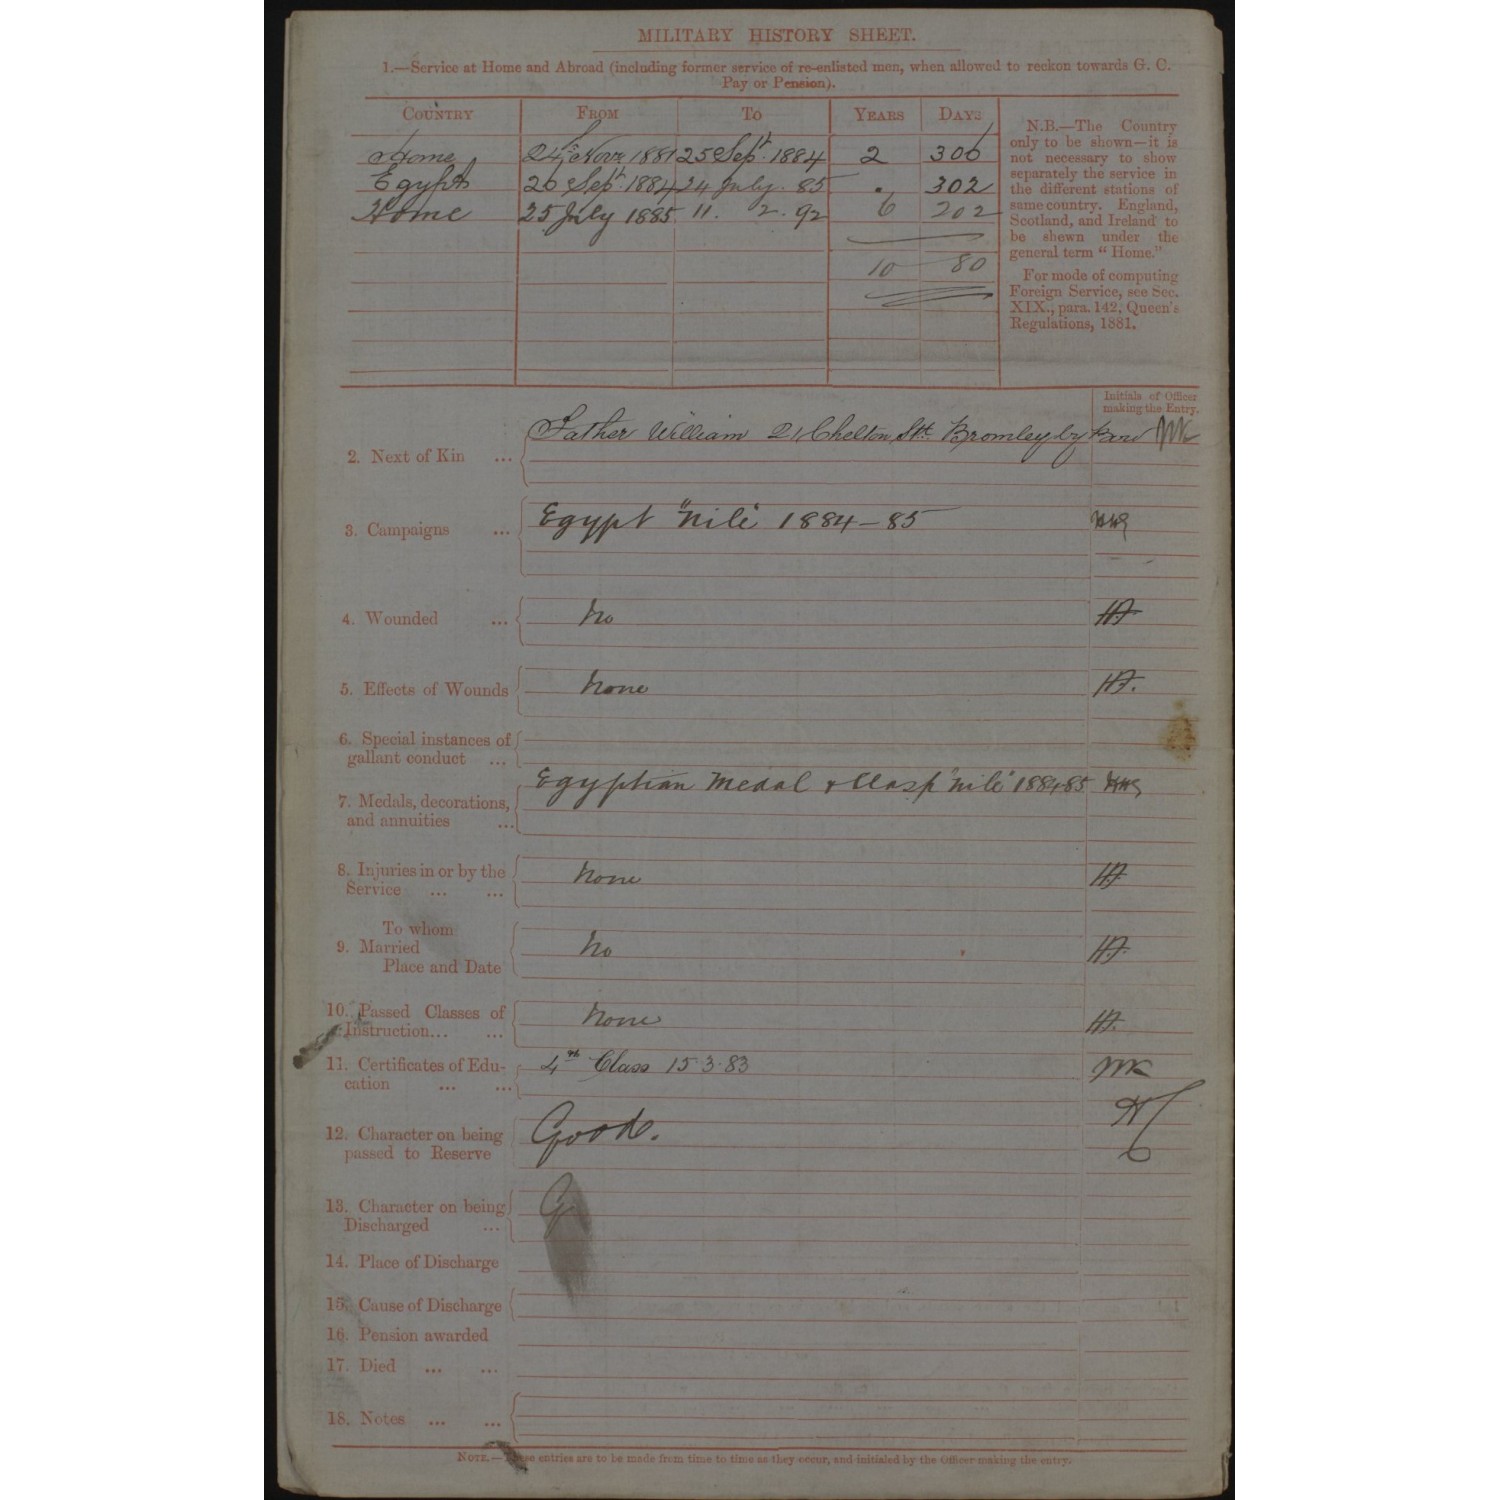 MILITARY HISTORY SHEET.
1.—Service at Home and Abroad (including former service of re-enlisted men, when allowed to reckon towards G. C.
Pay or Pension).
COUNTRY FROM TO YEARS DAYS
Home 24th Novr. 1881 25 Sept. 1884 2 306
Egypt 26 Sept. 1884 24 July. 85 . 302
Home 25 July 1885 11. 2. 92 6 202
10 80
N.B.—The Country
only to be shown—it is
not necessary to show
separately the service in
the different stations of
same country. England,
Scotland, and Ireland to
be shewn under the
general term “Home.”
For mode of computing
Foreign Service, see Sec.
XIX., para. 142, Queen's
Regulations, 1881.
Initials of Officer
making the Entry.
2. Next of Kin ... Father William 21 Chelton St. Bromley by Bow
3. Campaigns ... Egypt "Nile" 1884-85
4. Wounded ... No H.F.
5. Effects of Wounds None H.F.
6. Special instances of
gallant conduct ...
7. Medals, decorations,
and annuities ... Egyptian Medal & Clasp "Nile" 1884-85
8. Injuries in or by the
Service ... ... None H.F.
To whom
9. Married No H.F.
Place and Date
10. Passed Classes of
Instruction... ... None H.F.
11. Certificates of Edu-
cation ... ... 4th Class 15.3.83
12. Character on being
passed to Reserve Good.
13. Character on being
Discharged ... G
14. Place of Discharge
15. Cause of Discharge
16. Pension awarded
17. Died ... ...
18. Notes ... ...
NOTE.—These entries are to be made from time to time as they occur, and initialed by the Officer making the entry.